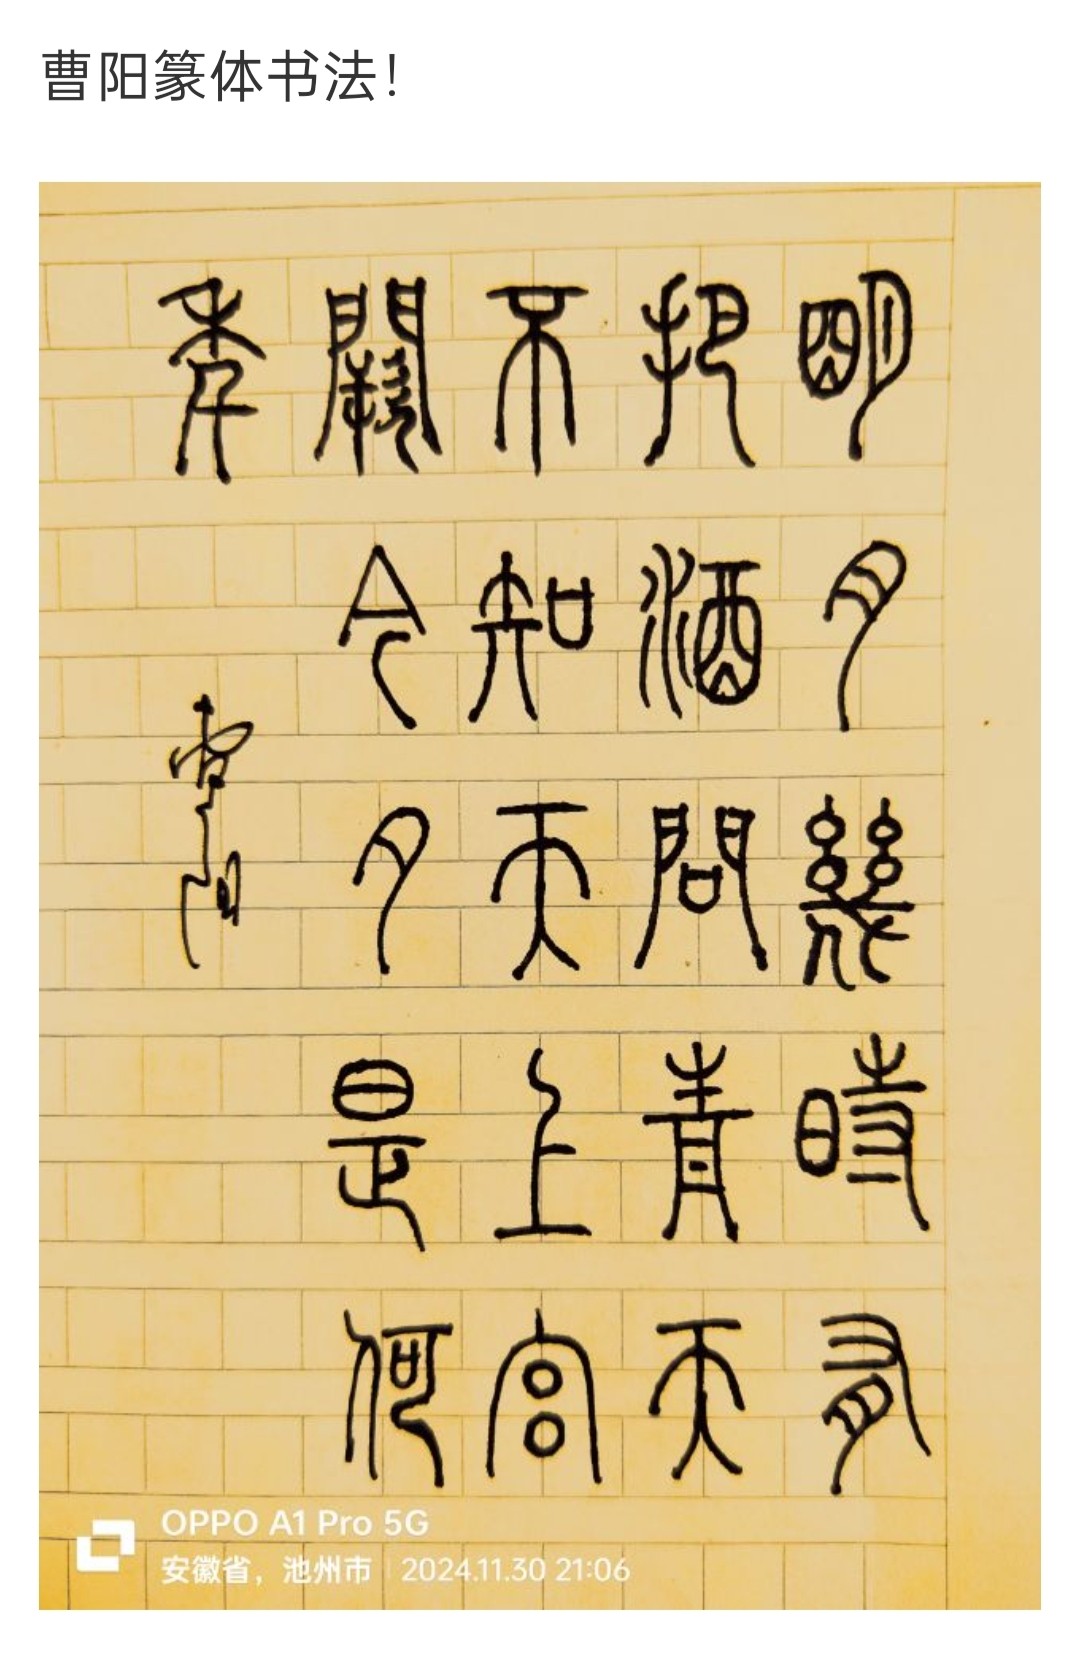 曹阳篆体书法！
明月幾時有
把酒問青天
不知天上宫
闕今夕是何
年
曹阳
OPPO A1 Pro 5G
安徽省，池州市 | 2024.11.30 21:06